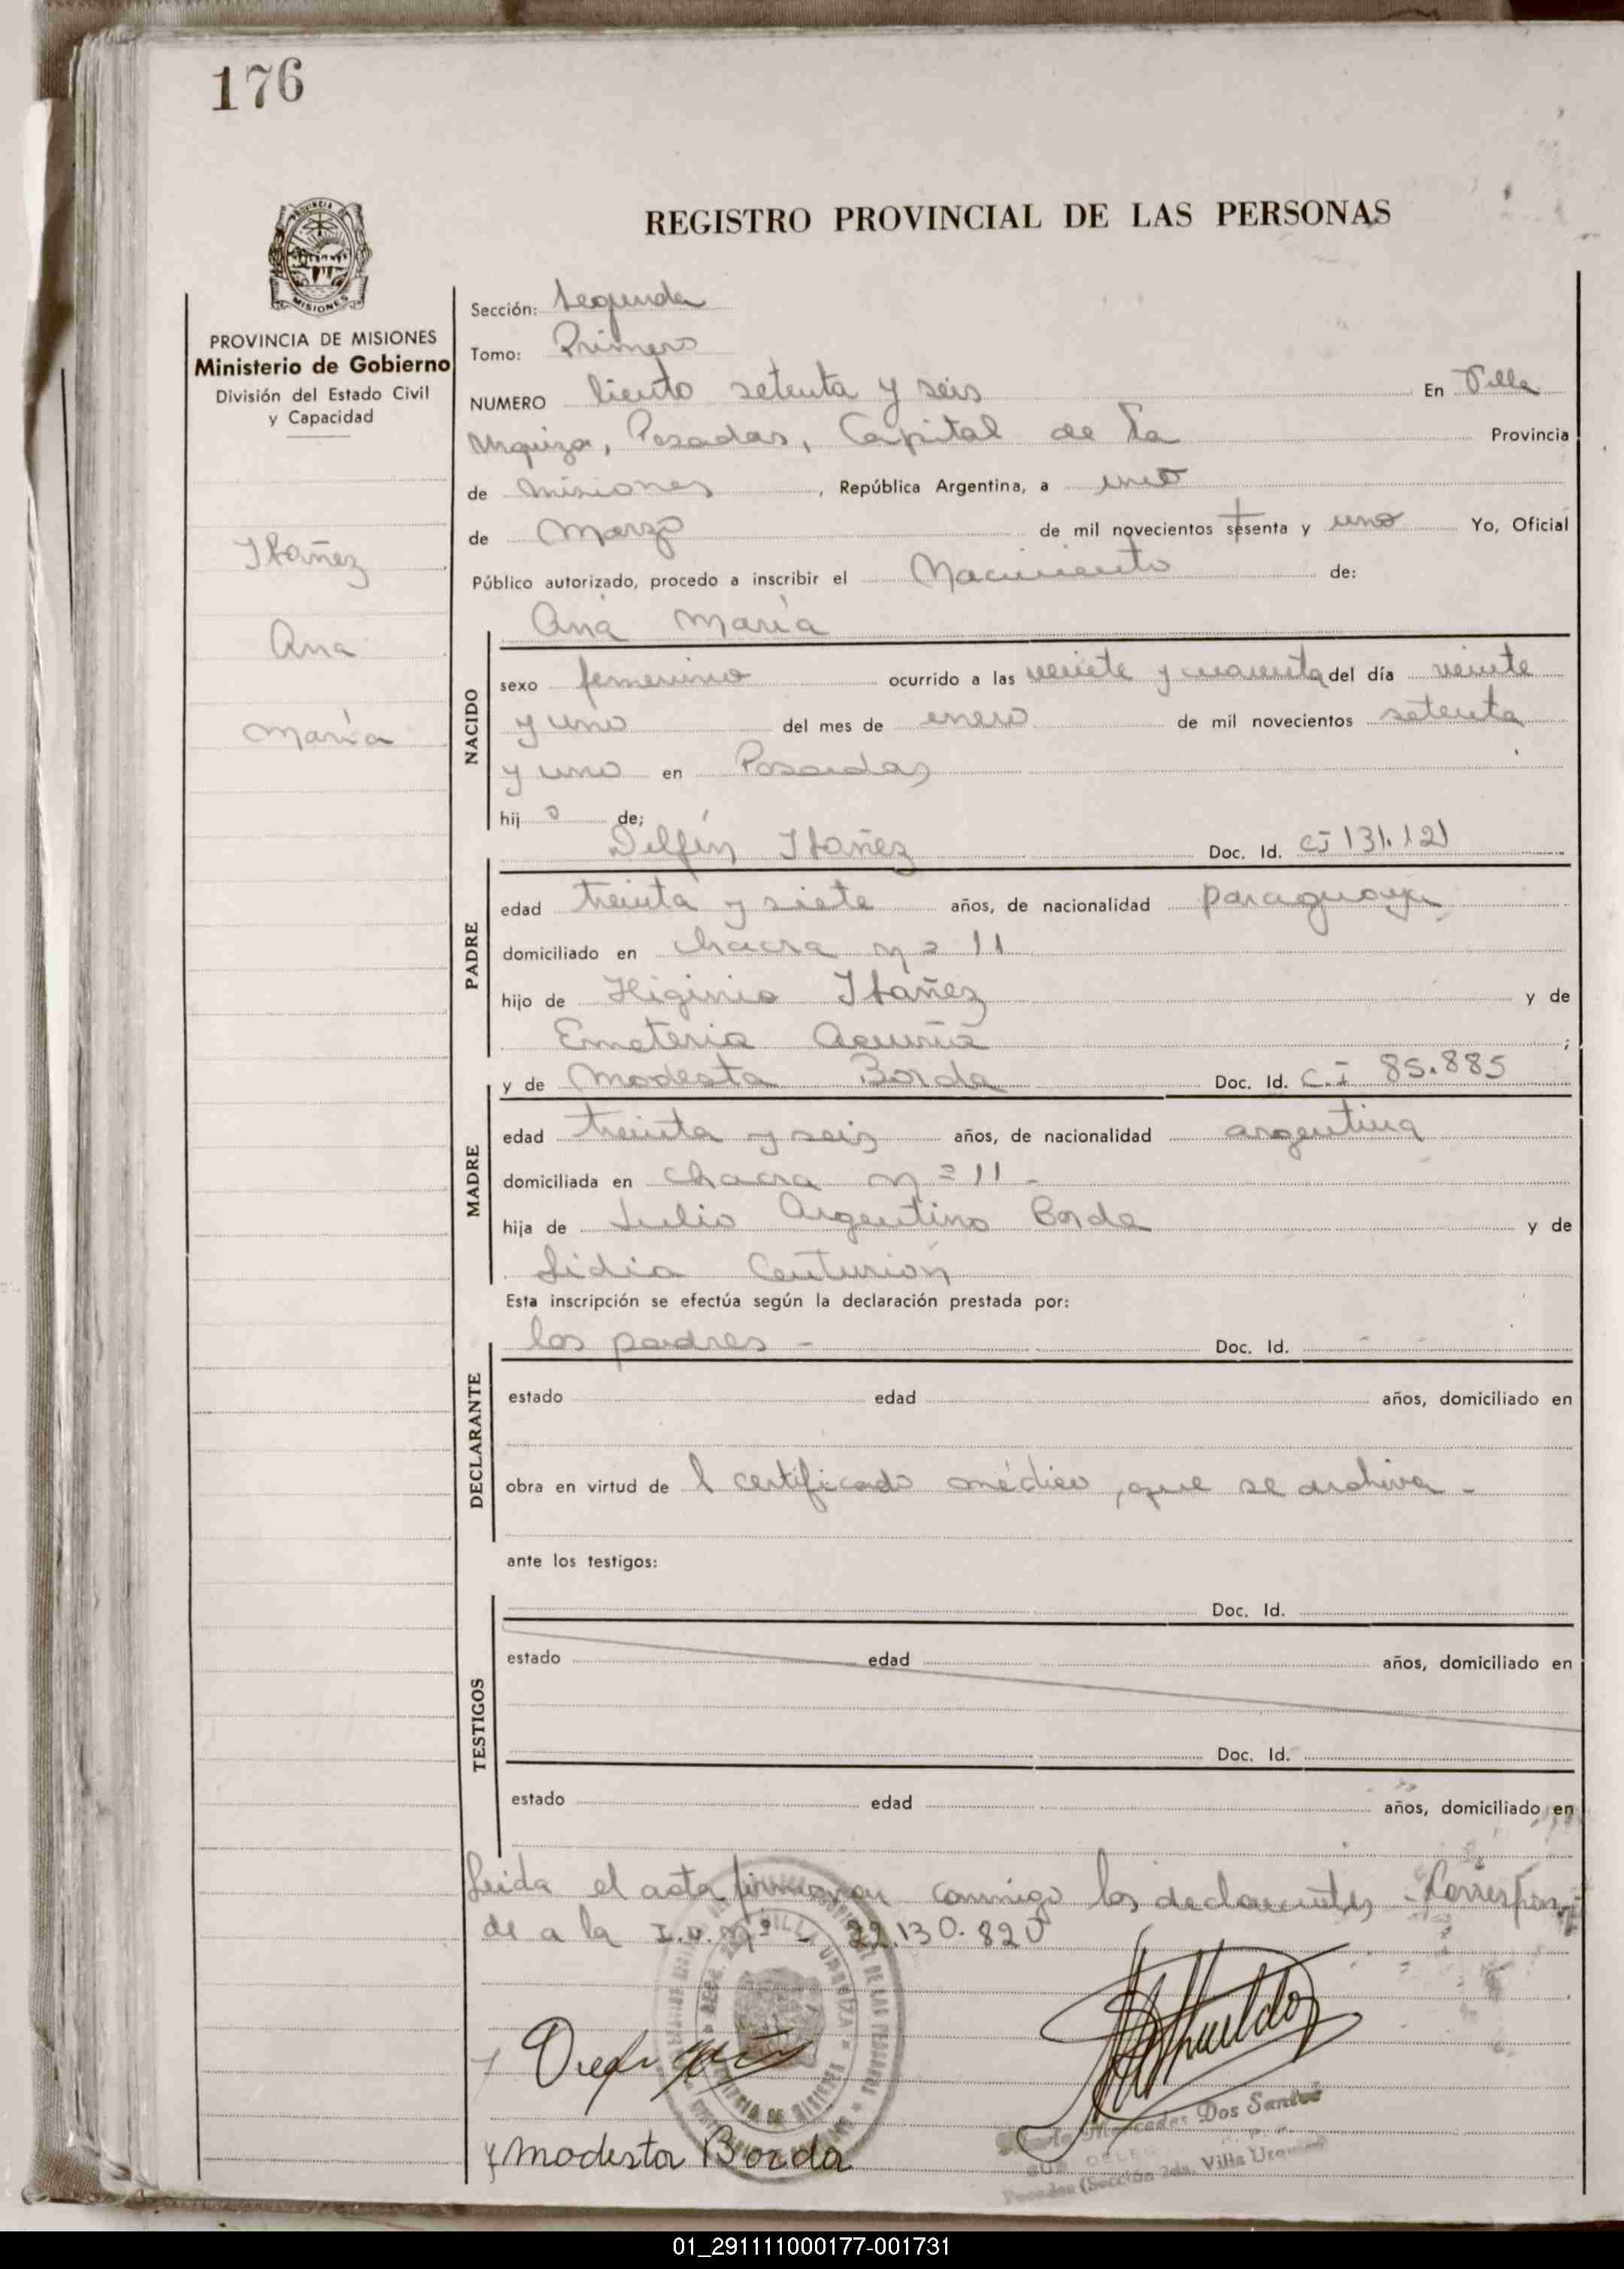 176
REGISTRO PROVINCIAL DE LAS PERSONAS
MISIONES
PROVINCIA DE MISIONES
Ministerio de Gobierno
División del Estado Civil
y Capacidad
Ibañez
Ana
María
Sección: Segunda
Tomo: Primero
NUMERO Ciento setenta y seis En Villa
Urquiza, Posadas, Capital de la Provincia
de Misiones, República Argentina, a uno
de Marzo de mil novecientos setenta y uno Yo, Oficial
Público autorizado, procedo a inscribir el Nacimiento de:
Ana María
NACIDO
sexo femenino ocurrido a las y cuarenta del día veinte
y uno del mes de enero de mil novecientos setenta
y uno en Posadas
hij o de;
Delfín Ibañez Doc. Id. CI 131.121
PADRE
edad treinta y siete años, de nacionalidad paraguaya
domiciliado en chacra nº 11
hijo de Higinio Ibañez y de
Emeteria Acuña ;
y de Modesta Borda Doc. Id. C.I 85.885
MADRE
edad treinta y seis años, de nacionalidad argentina
domiciliada en chacra nº 11 -
hija de Julio Argentino Borda y de
Lidia Centurión
Esta inscripción se efectúa según la declaración prestada por:
los padres - Doc. Id.
DECLARANTE
estado edad años, domiciliado en
obra en virtud de l certificado médico, que se archiva -
ante los testigos:
Doc. Id.
TESTIGOS
estado edad años, domiciliado en
Doc. Id.
estado edad años, domiciliado en
Leida el acta firmaron conmigo los declarantes - Correspon
de a la I.U. Nº - 22.130.820
Modesta Borda
Dos Santos
Posadas (Sección 2da. Villa Urquiza)
01_291111000177-001731